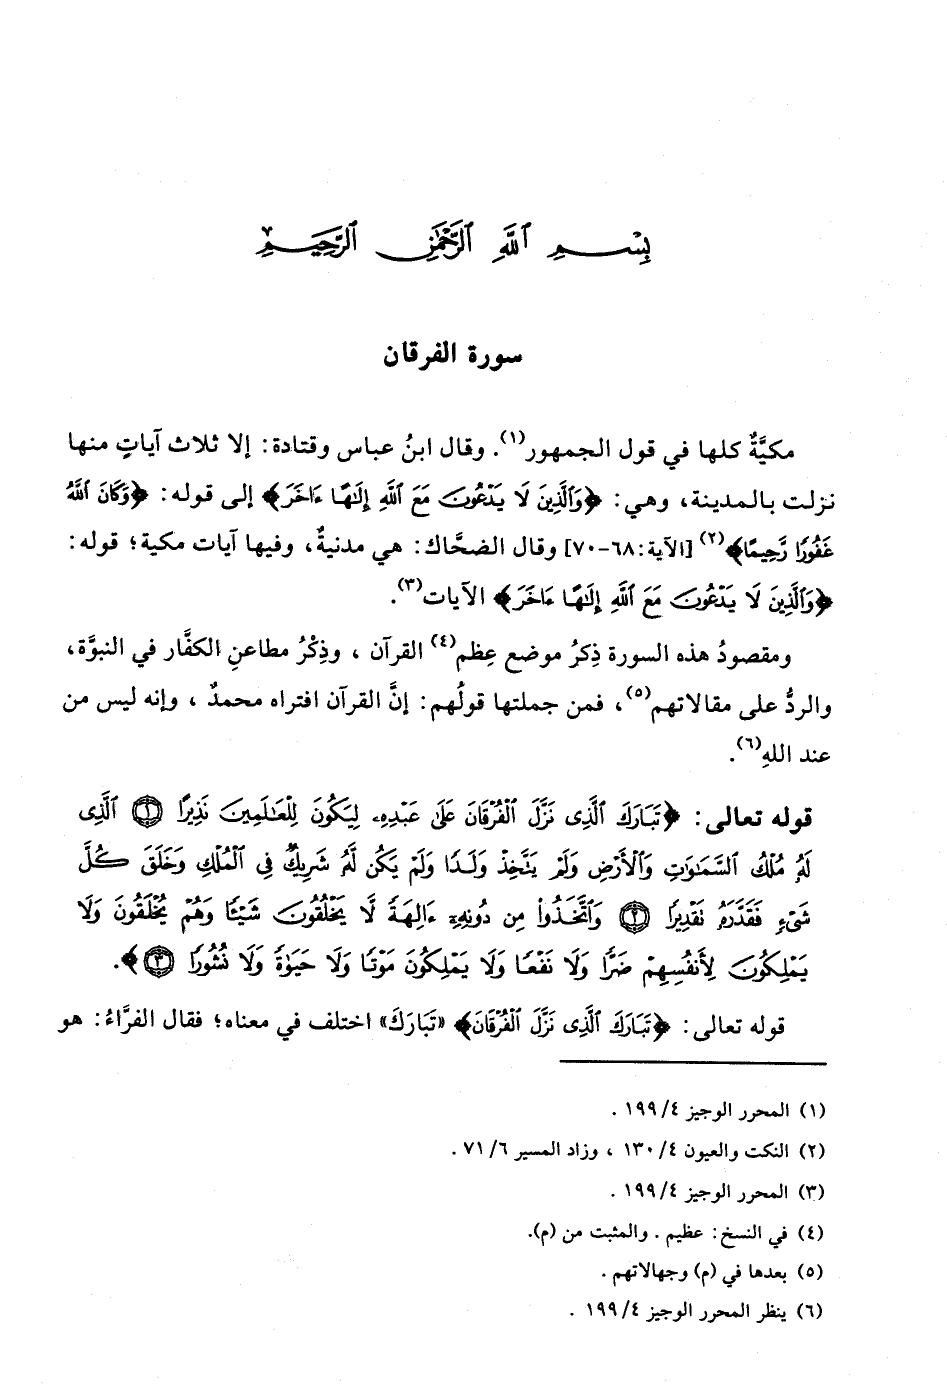 بِسْمِ ٱللَّهِ ٱلرَّحْمَٰنِ ٱلرَّحِيمِ
سورة الفرقان
مكيَّةٌ كلها في قول الجمهور(١). وقال ابنُ عباس وقتادة: إلا ثلاث آياتٍ منها
نزلت بالمدينة، وهي: ﴿وَٱلَّذِينَ لَا يَدْعُونَ مَعَ ٱللَّهِ إِلَٰهًا ءَاخَرَ﴾ إلى قوله: ﴿وَكَانَ ٱللَّهُ
غَفُورًا رَّحِيمًا﴾(٢) [الآية:٦٨-٧٠] وقال الضحَّاك: هي مدنيةٌ، وفيها آيات مكية؛ قوله:
﴿وَٱلَّذِينَ لَا يَدْعُونَ مَعَ ٱللَّهِ إِلَٰهًا ءَاخَرَ﴾ الآيات(٣).
ومقصودُ هذه السورة ذِكرُ موضع عِظم(٤) القرآن ، وذِكْرُ مطاعنِ الكفَّار في النبوَّة،
والردُّ على مقالاتهم(٥)، فمن جملتها قولُهم: إنَّ القرآن افتراه محمدٌ ، وإنه ليس من
عند اللهِ(٦).
قوله تعالى: ﴿تَبَارَكَ ٱلَّذِى نَزَّلَ ٱلْفُرْقَانَ عَلَىٰ عَبْدِهِۦ لِيَكُونَ لِلْعَٰلَمِينَ نَذِيرًا ١ ٱلَّذِى
لَهُۥ مُلْكُ ٱلسَّمَٰوَٰتِ وَٱلْأَرْضِ وَلَمْ يَتَّخِذْ وَلَدًا وَلَمْ يَكُن لَّهُۥ شَرِيكٌ فِى ٱلْمُلْكِ وَخَلَقَ كُلَّ
شَىْءٍ فَقَدَّرَهُۥ تَقْدِيرًا ٢ وَٱتَّخَذُوا۟ مِن دُونِهِۦٓ ءَالِهَةً لَّا يَخْلُقُونَ شَيْـًٔا وَهُمْ يُخْلَقُونَ وَلَا
يَمْلِكُونَ لِأَنفُسِهِمْ ضَرًّا وَلَا نَفْعًا وَلَا يَمْلِكُونَ مَوْتًا وَلَا حَيَوٰةً وَلَا نُشُورًا ٣﴾.
قوله تعالى: ﴿تَبَارَكَ ٱلَّذِى نَزَّلَ ٱلْفُرْقَانَ﴾ «تَبَارَكَ» اختلف في معناه؛ فقال الفرَّاءُ: هو
(١) المحرر الوجيز ٤/ ١٩٩ .
(٢) النكت والعيون ٤/ ١٣٠ ، وزاد المسير ٦/ ٧١ .
(٣) المحرر الوجيز ٤/ ١٩٩ .
(٤) في النسخ: عظيم . والمثبت من (م).
(٥) بعدها في (م) وجهالاتهم .
(٦) ينظر المحرر الوجيز ٤/ ١٩٩ .